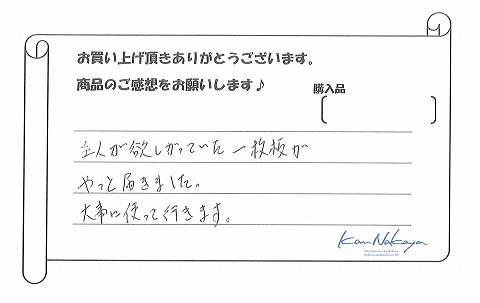 お買い上げ頂きありがとうございます。
商品のご感想をお願いします♪
購入品
主人が欲しがっていた一枚板が
やっと届きました。
大事に使って行きます。
Kan Nakaya